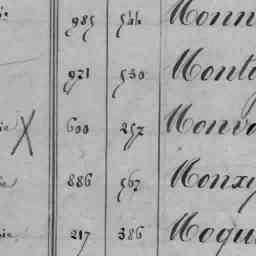 985 544 Monn
921 530 Monty
600 257 Monva
886 567 Monxy
217 386 Moqu